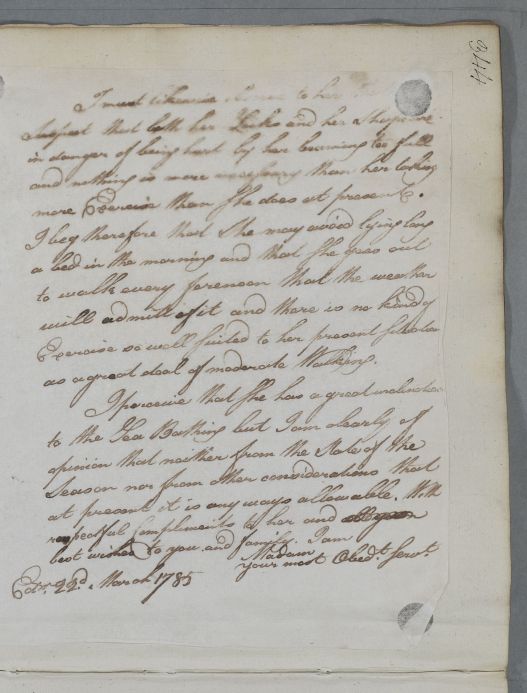 4448
I must likewise to her
Suspect that both her Looks and her Shape are
in danger of being hurt by her becoming too full
and nothing is more necessary than her taking
more Exercise than She does at present.
I beg therefore that She may avoid lying long
a bed in the morning and that She goes out
to walk every forenoon that the weather
will admitt of it and there is no kind of
Exercise so well suited to her present
as a great deal of moderate Walking.
I perceive that She has a great inclination
to the Sea Bathing but I am clearly of
opinion that neither from the State of the
Season nor from other considerations that
at present it is any ways allowable. With
respectful Compliments to her and
best wishes to you and family. I am
Madam
your most Obedt. Servt.
Edr. 22d. March 1785